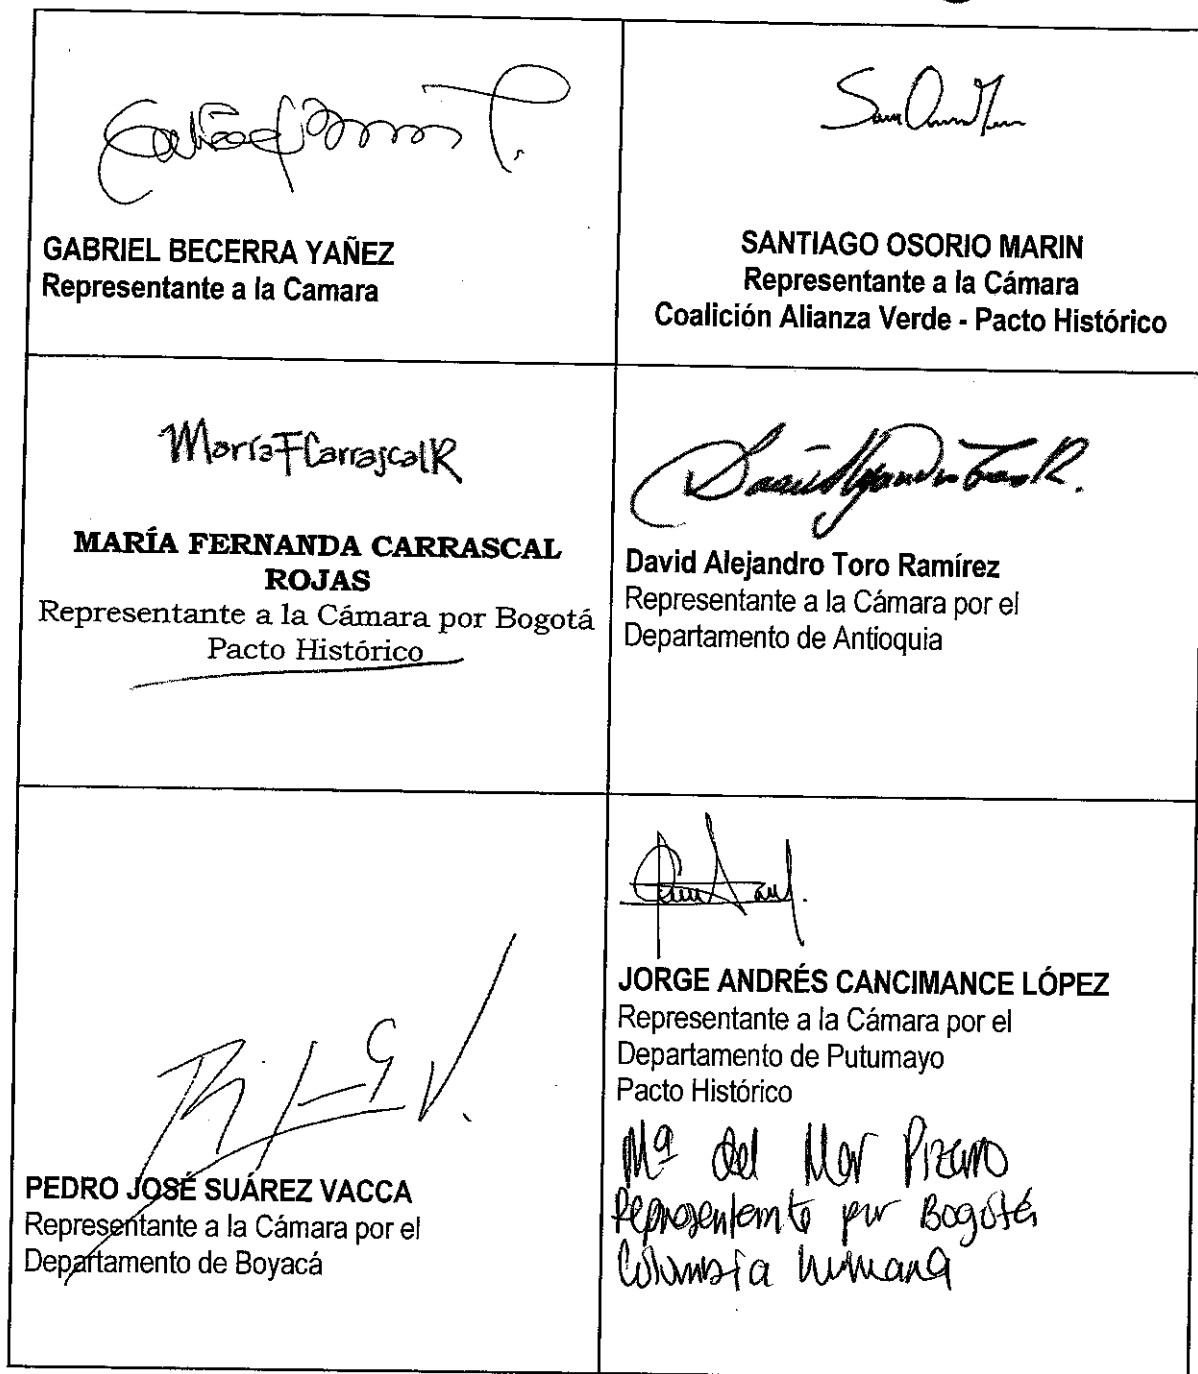 GABRIEL BECERRA YAÑEZ
Representante a la Camara
SANTIAGO OSORIO MARIN
Representante a la Cámara
Coalición Alianza Verde - Pacto Histórico
María F Carrascal R
MARÍA FERNANDA CARRASCAL
ROJAS
Representante a la Cámara por Bogotá
Pacto Histórico
David Alejandro Toro Ramírez
Representante a la Cámara por el
Departamento de Antioquia
PEDRO JOSÉ SUÁREZ VACCA
Representante a la Cámara por el
Departamento de Boyacá
JORGE ANDRÉS CANCIMANCE LÓPEZ
Representante a la Cámara por el
Departamento de Putumayo
Pacto Histórico
Mª del Mar Pizarro
Representante por Bogotá
Colombia Humana